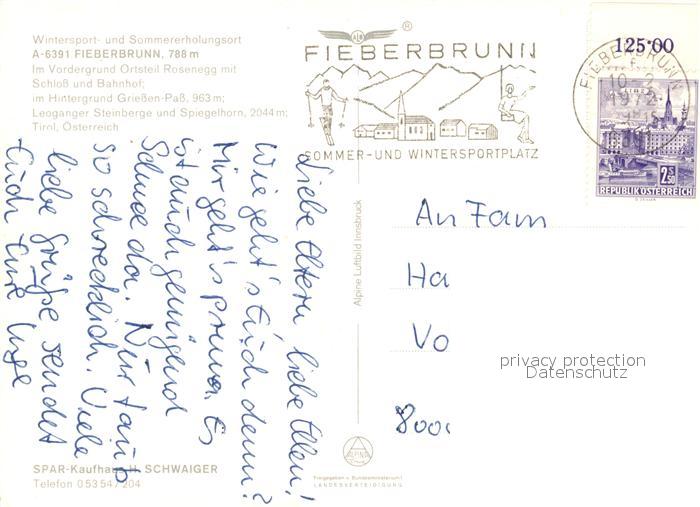 Wintersport- und Sommererholungsort
A-6391 FIEBERBRUNN, 788 m
Im Vordergrund Ortsteil Rosenegg mit
Schloß und Bahnhof;
im Hintergrund Grießen-Paß, 963 m;
Leoganger Steinberge und Spiegelhorn, 2044 m;
Tirol, Österreich
®
FIEBERBRUNN
SOMMER-UND WINTERSPORTPLATZ
FIEBERBRUNN
10. 2.
1972
125·00
LINZ
2.50
REPUBLIK ÖSTERREICH
Liebe Eltern, liebe Ellen!
Wie geht's Euch denn?
Mir geht's prima. Es
ist auch genügend
Schnee da. Nur
so schrecklich. Viele
liebe Grüße sendet
Euch Eure Inge
Alpine Luftbild Innsbruck
An Fam
Ha
Vo
800
privacy protection
Datenschutz
ALPINE
Freigegeben v. Bundesministerium f.
LANDESVERTEIDIGUNG
SPAR-Kaufhaus H. SCHWAIGER
Telefon 0 53 54 / 204